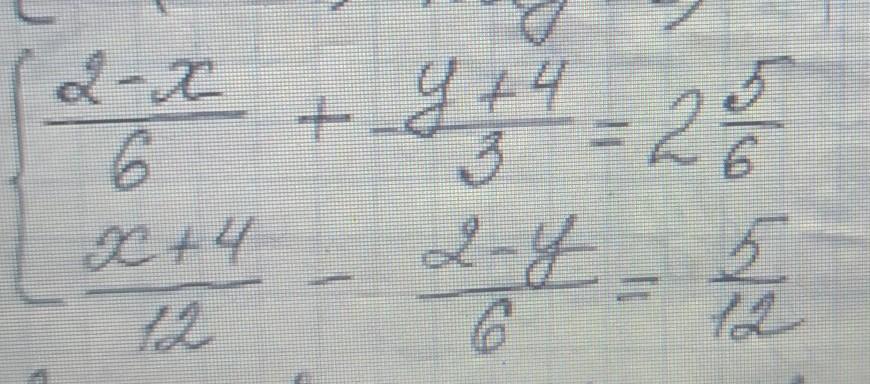 { (2-x)/6 + (y+4)/3 = 2 5/6
(x+4)/12 - (2-y)/6 = 5/12